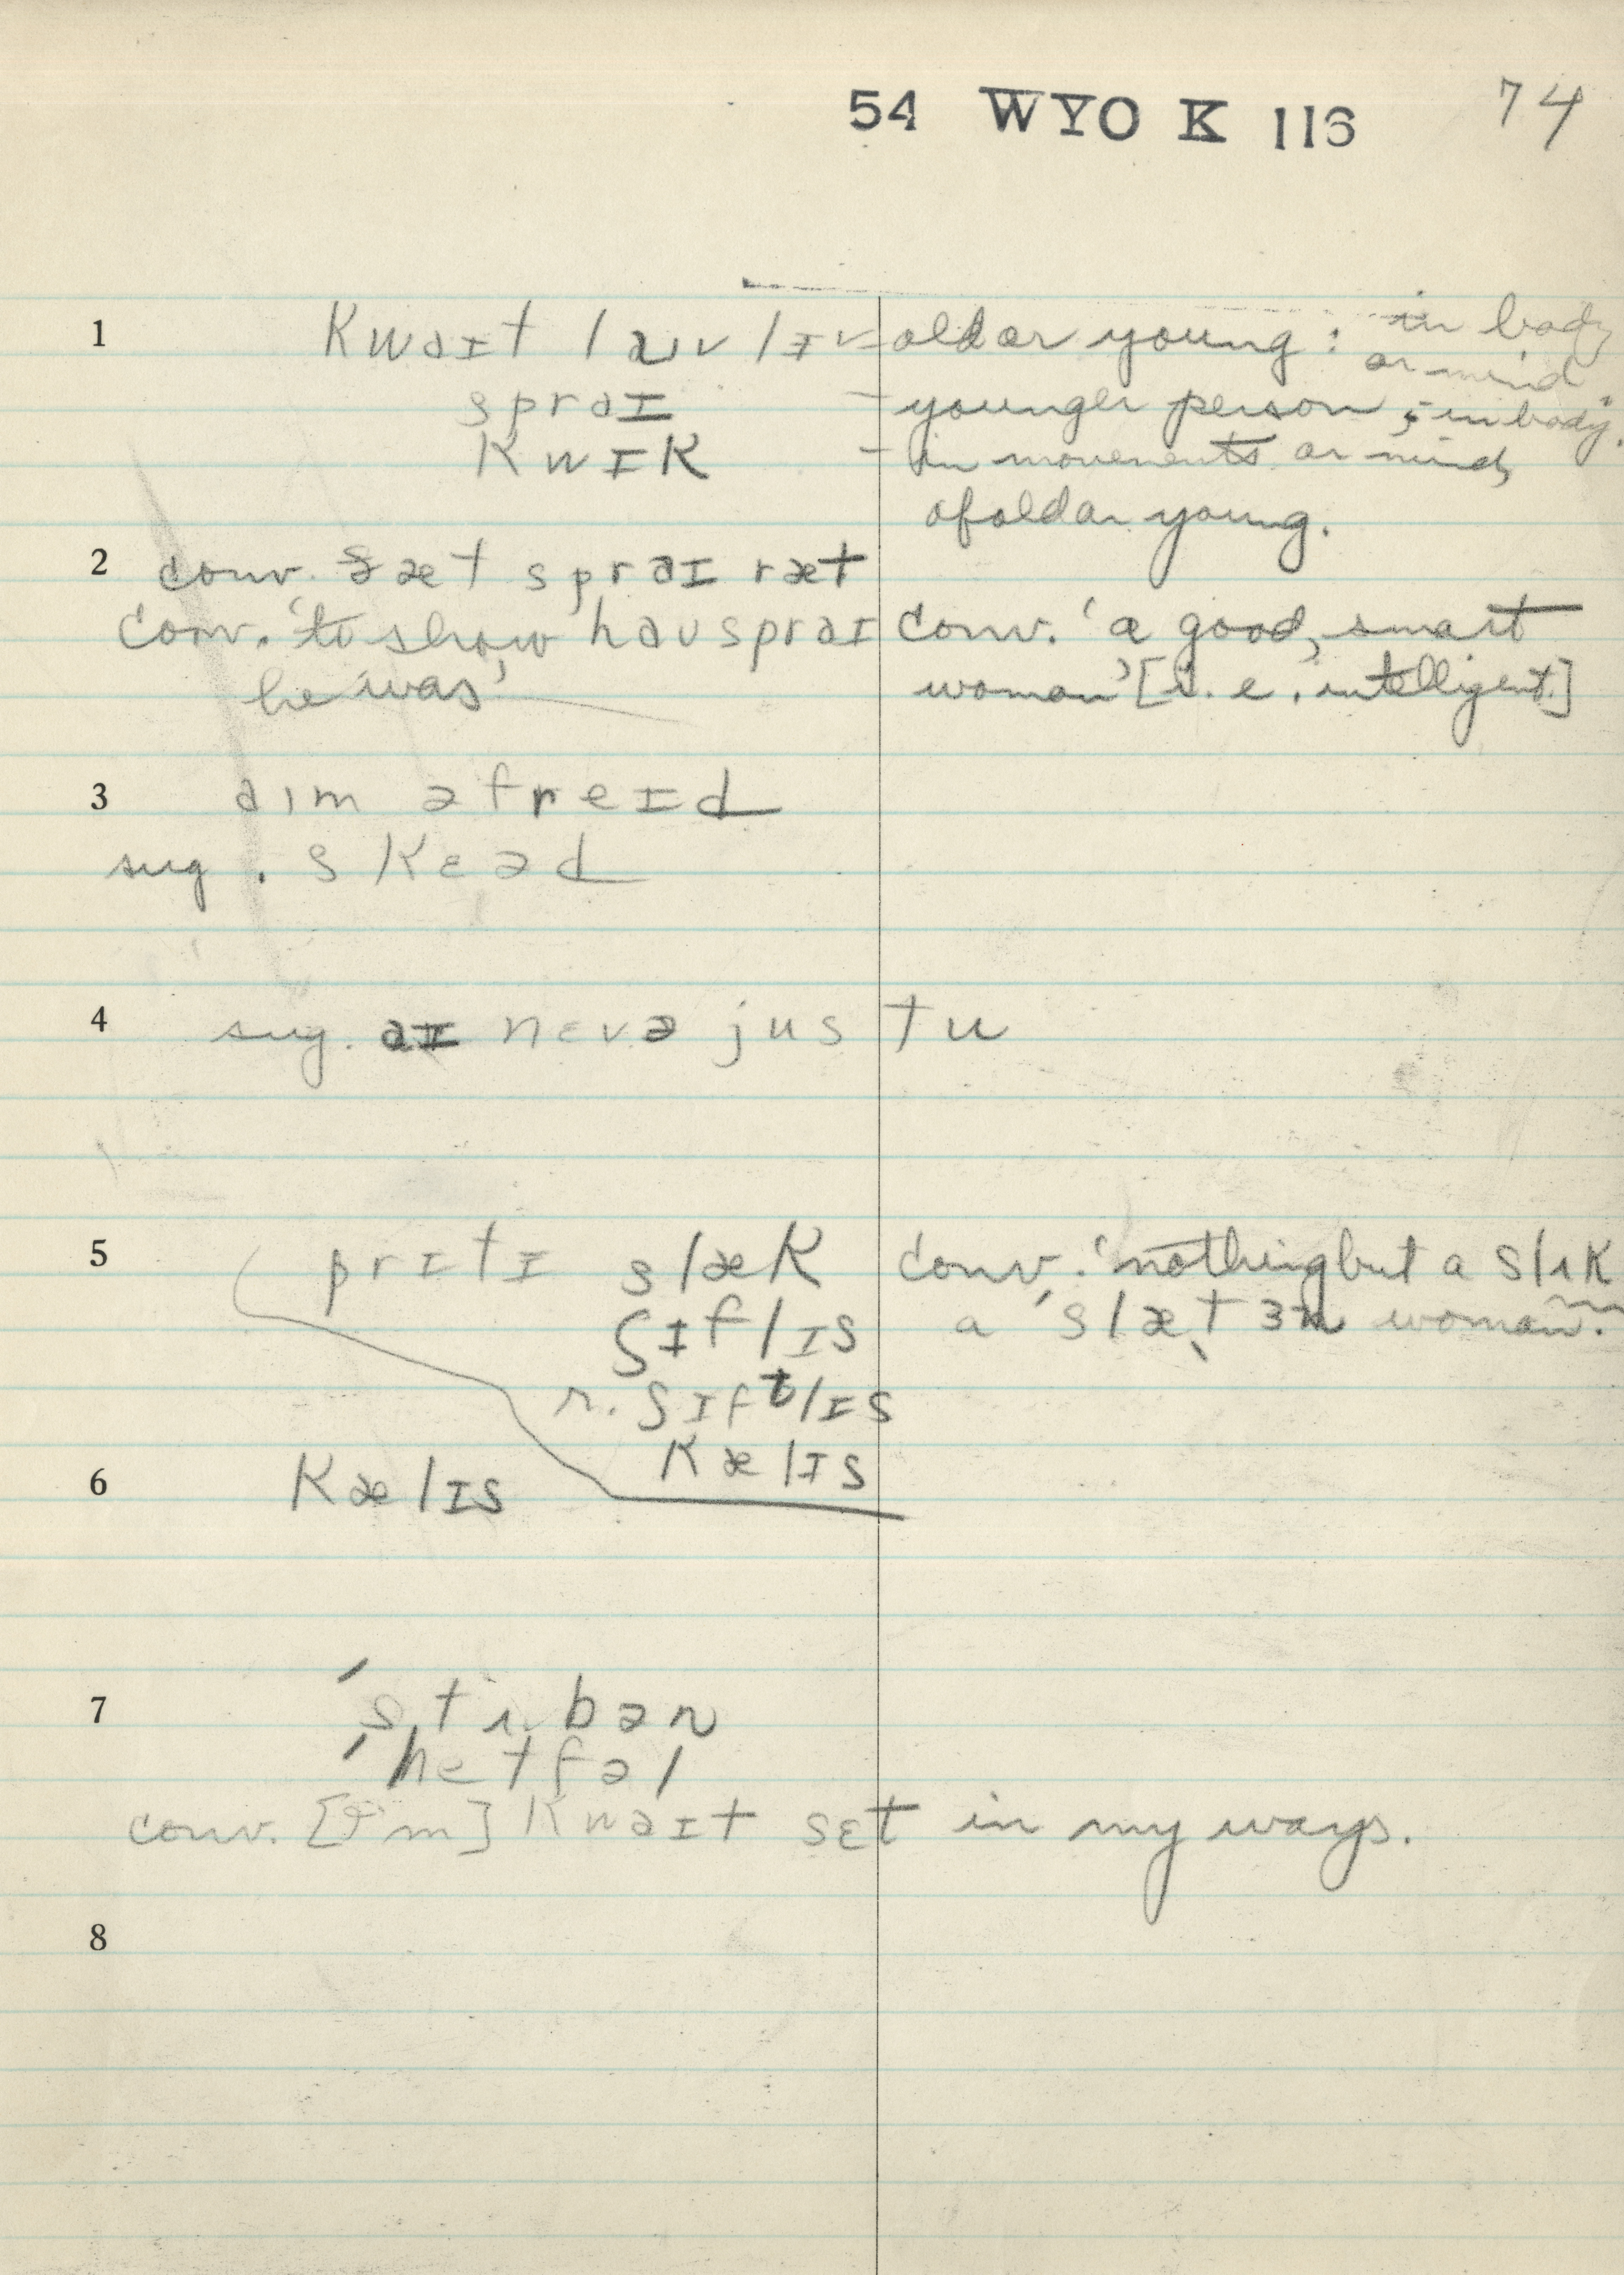 54 WYO K 116 74
1 kwaɪt laɪvlɪ – old or young : in body
or mind
spraɪ – younger person ; in body.
kwɪk – in movements or mind,
of old or young.
2 conv. ðæt spraɪ ræt
conv. 'to show haʊ spraɪ conv. 'a good, smart
he was' woman' [i. e., intelligent]
3 aɪm əfreɪd
sug. skɛəd
4 sug. aɪ nɛvə jus tu
5 prɪtɪ slæk conv. 'nothing but a slɪk
ʃɪflɪs a 'slætɜn woman.'
r. ʃɪftlɪs
kælɪs
6 kælɪs
7 'stʌbən
'hetfəl
conv. [I'm] kwaɪt sɛt in my ways.
8